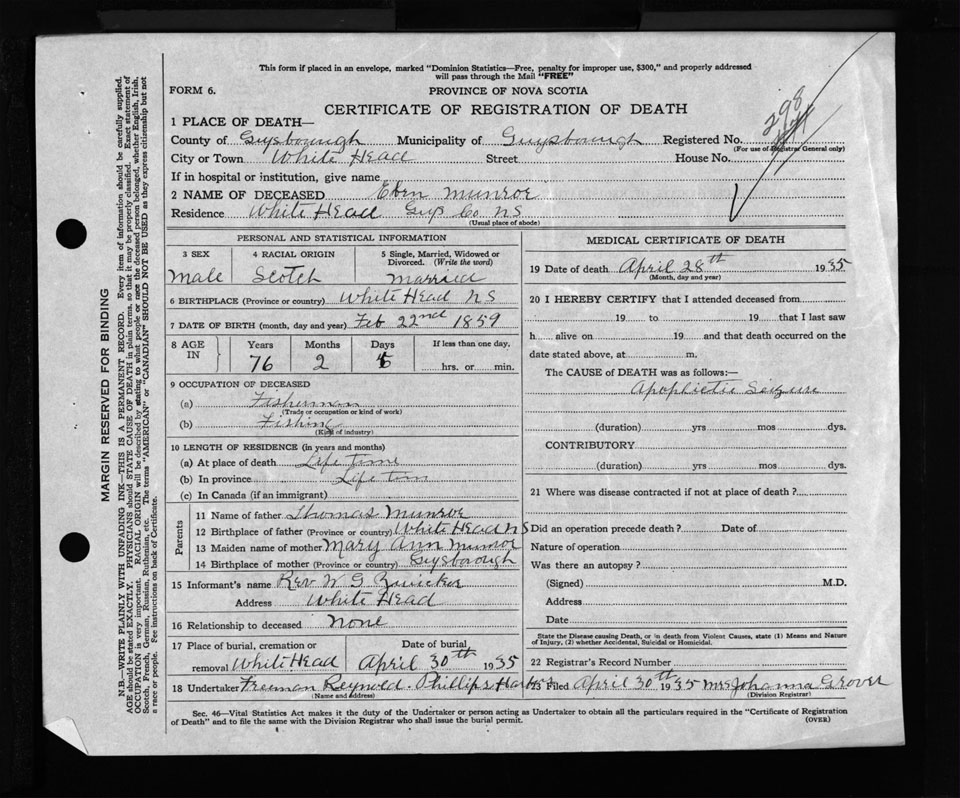 This form if placed in an envelope, marked "Dominion Statistics—Free, penalty for improper use, $300," and properly addressed
will pass through the Mail "FREE"
FORM 6. PROVINCE OF NOVA SCOTIA
CERTIFICATE OF REGISTRATION OF DEATH
298
1 PLACE OF DEATH—
County of Guysborough Municipality of Guysborough Registered No.
(For use of Registrar General only)
City or Town White Head Street House No.
If in hospital or institution, give name
2 NAME OF DECEASED Eben Munroe
Residence White Head Guys Co. NS
(Usual place of abode)
PERSONAL AND STATISTICAL INFORMATION
3 SEX 4 RACIAL ORIGIN 5 Single, Married, Widowed or
Divorced. (Write the word)
male Scotch married
6 BIRTHPLACE (Province or country) White Head NS
7 DATE OF BIRTH (month, day and year) Feb 22nd 1859
8 AGE IN Years Months Days If less than one day,
76 2 hrs. or min.
9 OCCUPATION OF DECEASED
(a) Fisherman
(Trade or occupation or kind of work)
(b) Fishing
(Kind of industry)
10 LENGTH OF RESIDENCE (in years and months)
(a) At place of death Life Time
(b) In province Life tim
(c) In Canada (if an immigrant)
Parents
11 Name of father Thomas Munroe
12 Birthplace of father (Province or country) White Head NS
13 Maiden name of mother Mary Ann Munroe
14 Birthplace of mother (Province or country) Guysborough
15 Informant's name Rev W G
Address White Head
16 Relationship to deceased None
17 Place of burial, cremation or Date of burial
removal White Head April 30th 1935
18 Undertaker Freeman Reynold. Phillips Harbor
(Name and address)
MEDICAL CERTIFICATE OF DEATH
19 Date of death April 28th 1935
(Month, day and year)
20 I HEREBY CERTIFY that I attended deceased from
19 to 19 that I last saw
h alive on 19 and that death occurred on the
date stated above, at m.
The CAUSE of DEATH was as follows:—
Apoplictic Seizure
(duration) yrs mos dys.
CONTRIBUTORY
(duration) yrs mos dys.
21 Where was disease contracted if not at place of death?
Did an operation precede death? Date of
Nature of operation
Was there an autopsy?
(Signed) M.D.
Address
Date
State the Disease causing Death, or in death from Violent Causes, state (1) Means and Nature
of Injury, (2) whether Accidental, Suicidal or Homicidal.
22 Registrar's Record Number
23 Filed April 30th 1935 Mrs Johanna Grover
(Division Registrar)
Sec. 46—Vital Statistics Act makes it the duty of the Undertaker or person acting as Undertaker to obtain all the particulars required in the "Certificate of Registration
of Death" and to file the same with the Division Registrar who shall issue the burial permit.
(OVER)
MARGIN RESERVED FOR BINDING
N.B.—WRITE PLAINLY WITH UNFADING INK—THIS IS A PERMANENT RECORD. Every item of information should be carefully supplied.
AGE should be stated EXACTLY. PHYSICIANS should STATE CAUSE OF DEATH in plain terms so that it may be properly classified. Exact statement of
OCCUPATION is very important. RACIAL ORIGIN will be described by stating to what people or race the deceased person belonged, whether English, Irish,
Scotch, French, German, Russian, Ruthenian, etc. The terms "AMERICAN" or "CANADIAN" SHOULD NOT BE USED as they express citizenship but not
a race or people. See instructions on back of Certificate.